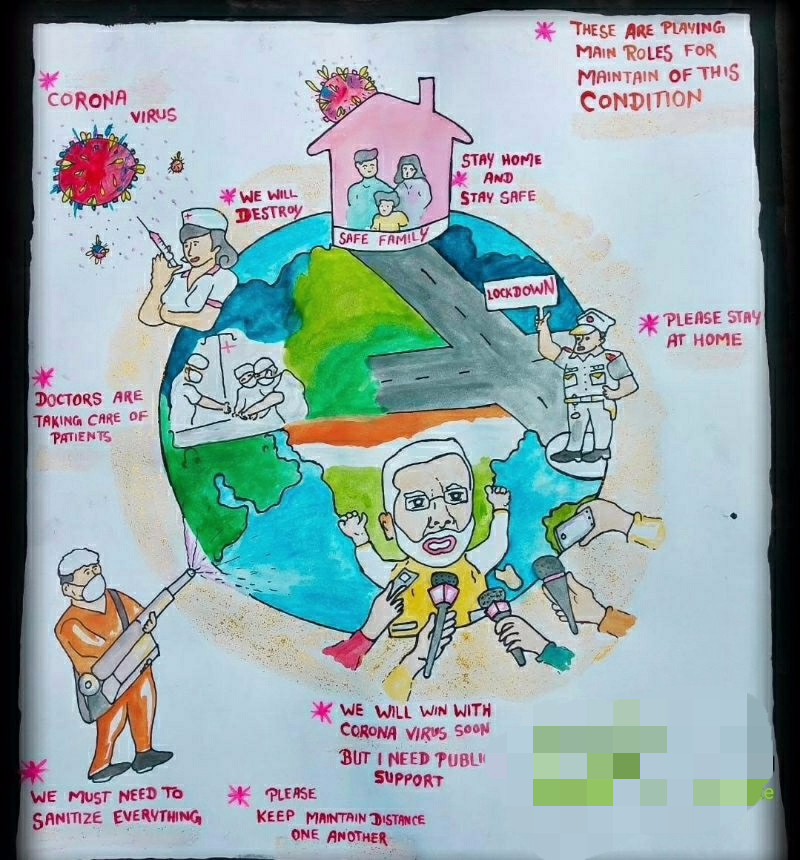 THESE ARE PLAYING
MAIN ROLES FOR
MAINTAIN OF THIS
CONDITION
CORONA
VIRUS
WE WILL
DESTROY
STAY HOME
AND
STAY SAFE
SAFE FAMILY
LOCKDOWN
PLEASE STAY
AT HOME
DOCTORS ARE
TAKING CARE OF
PATIENTS
WE WILL WIN WITH
CORONA VIRUS SOON
BUT I NEED PUBLI
SUPPORT
WE MUST NEED TO
SANITIZE EVERYTHING
PLEASE
KEEP MAINTAIN DISTANCE
ONE ANOTHER